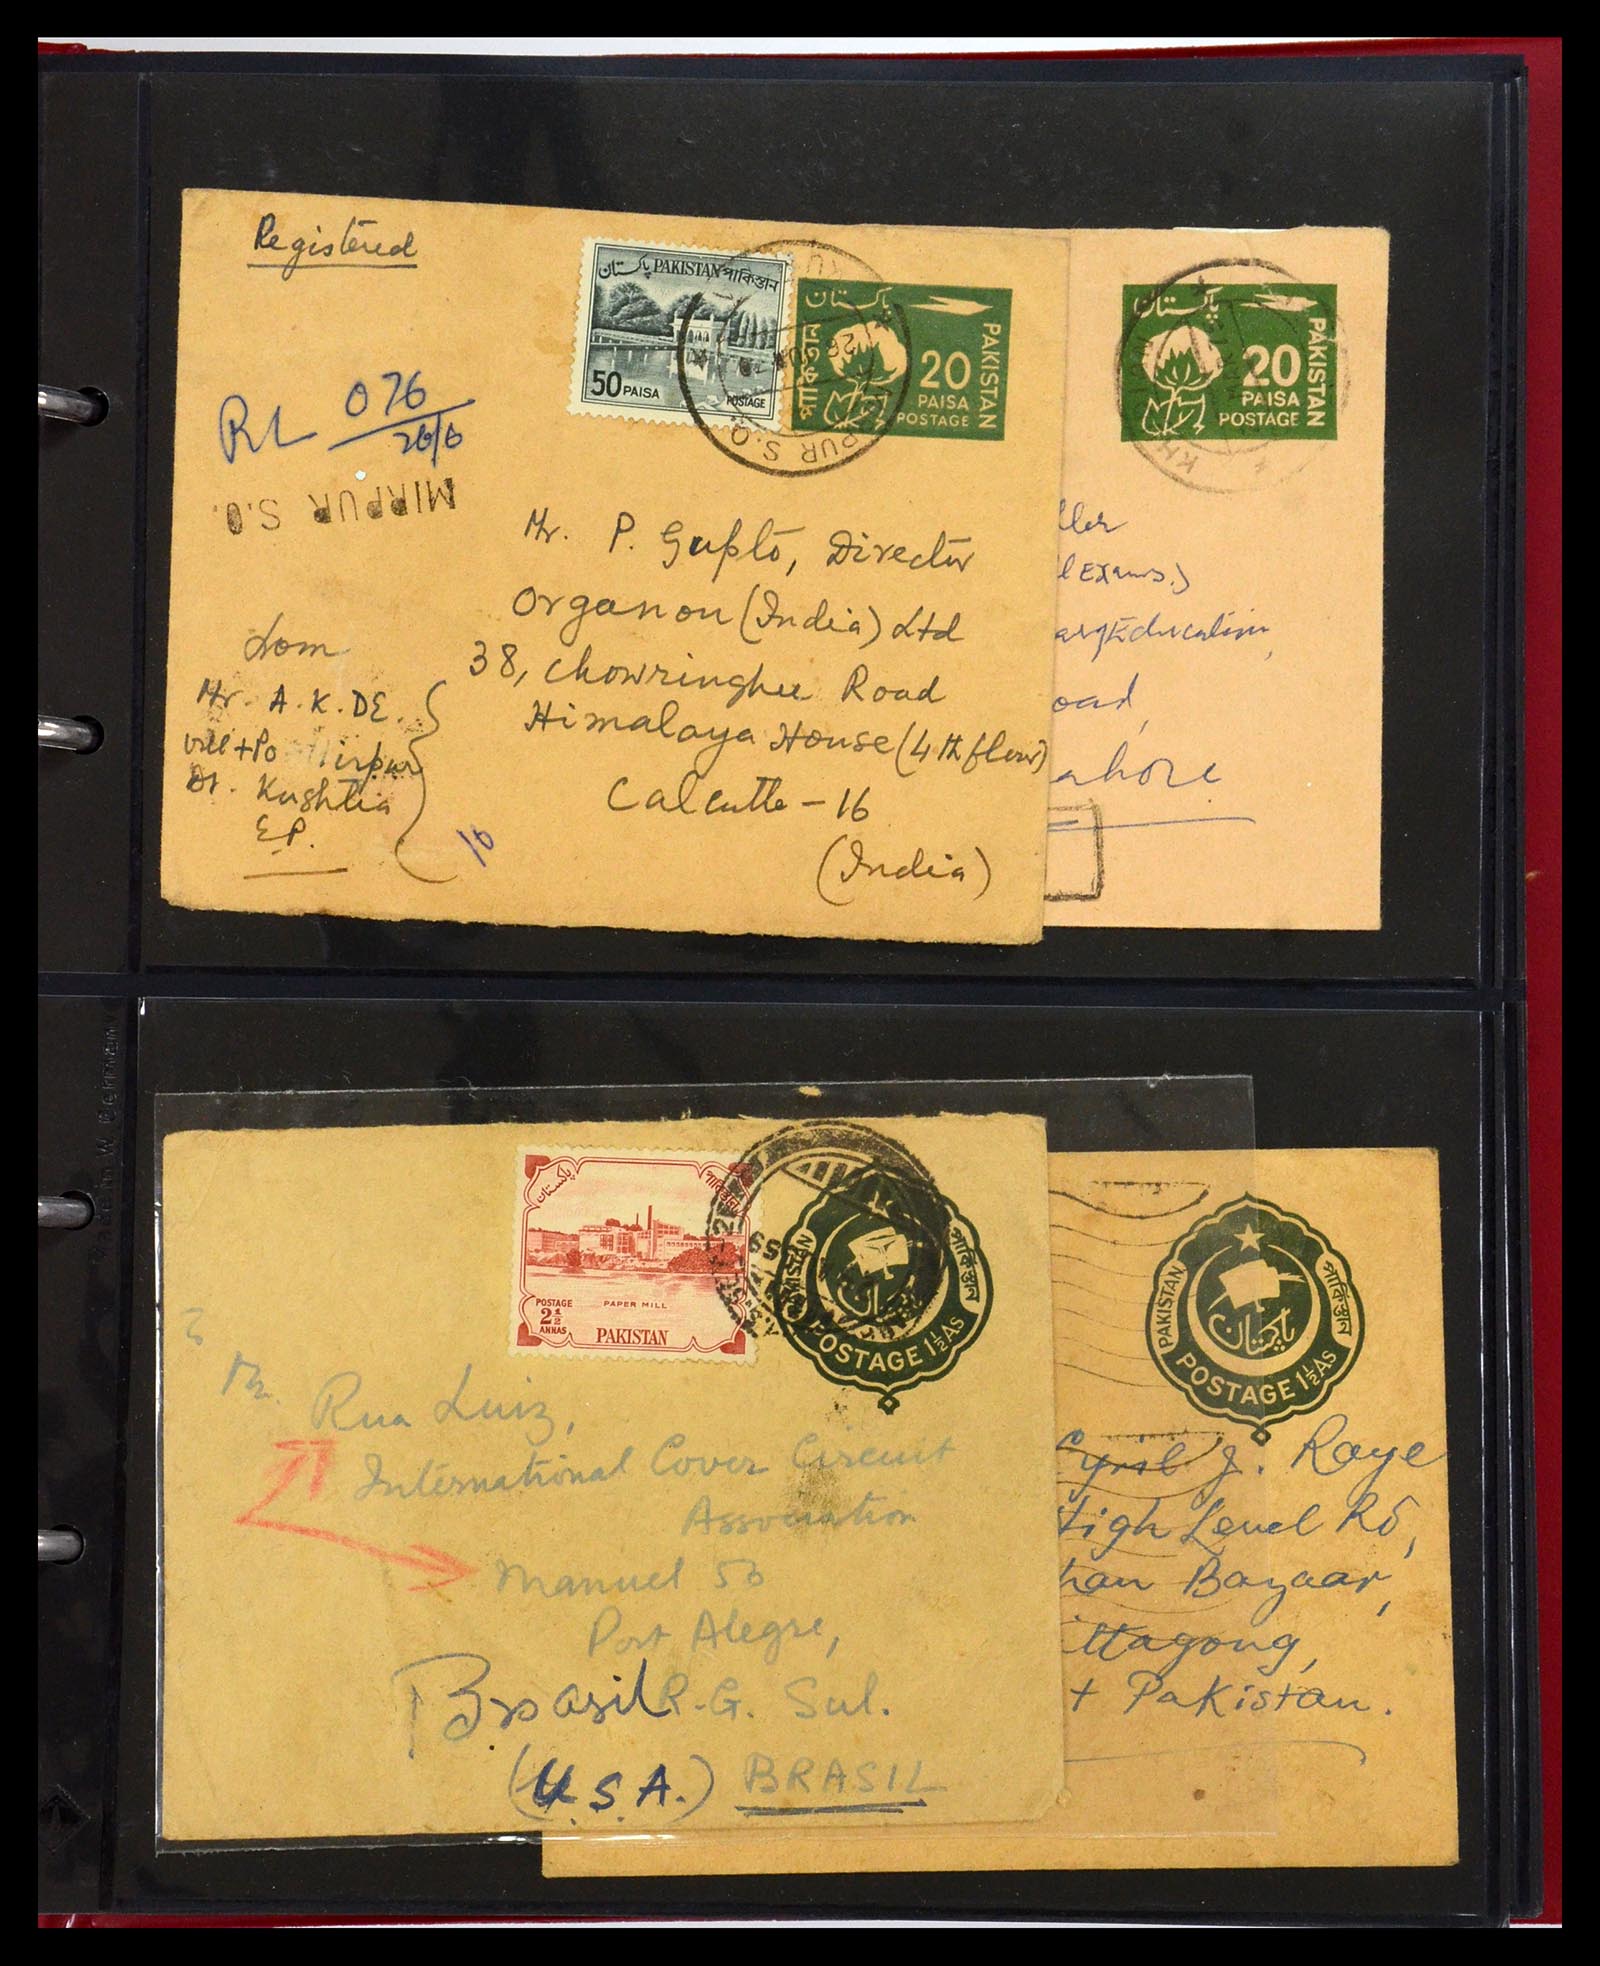 Registered
پاکستان PAKISTAN পাকিস্তান
50 PAISA
POSTAGE
پاکستان
পাকিস্তান
PAKISTAN
20
PAISA
POSTAGE
RL 076
26/6
MIRPUR S.O.
Mr. P. Gupto, Director
Organon (India) Ltd
38, Chowringhee Road
Himalaya House (4th floor)
Calcutta - 16
(India)
From
Mr. A. K. DE.
Vill + Po Mirpur
Dt. Kushtia
E.P.
10
پاکستان
PAKISTAN
20
PAISA
POSTAGE
ller
l Exams.)
ary Education,
oad,
ahore
پاکستان
পাকিস্তান
PAPER MILL
POSTAGE
2½
ANNAS
PAKISTAN
PAKISTAN
پاکستان
পাকিস্তান
POSTAGE 1½ AS
Rua Luiz,
International Cover Circuit
Association
Manuel 50
Port Alegre,
Brasil R. G. Sul.
(U.S.A.) BRASIL
PAKISTAN
پاکستان
পাকিস্তান
POSTAGE 1½ AS
Cyril J. Raye
High Level Rd,
han Bazaar,
ittagong,
t Pakistan.